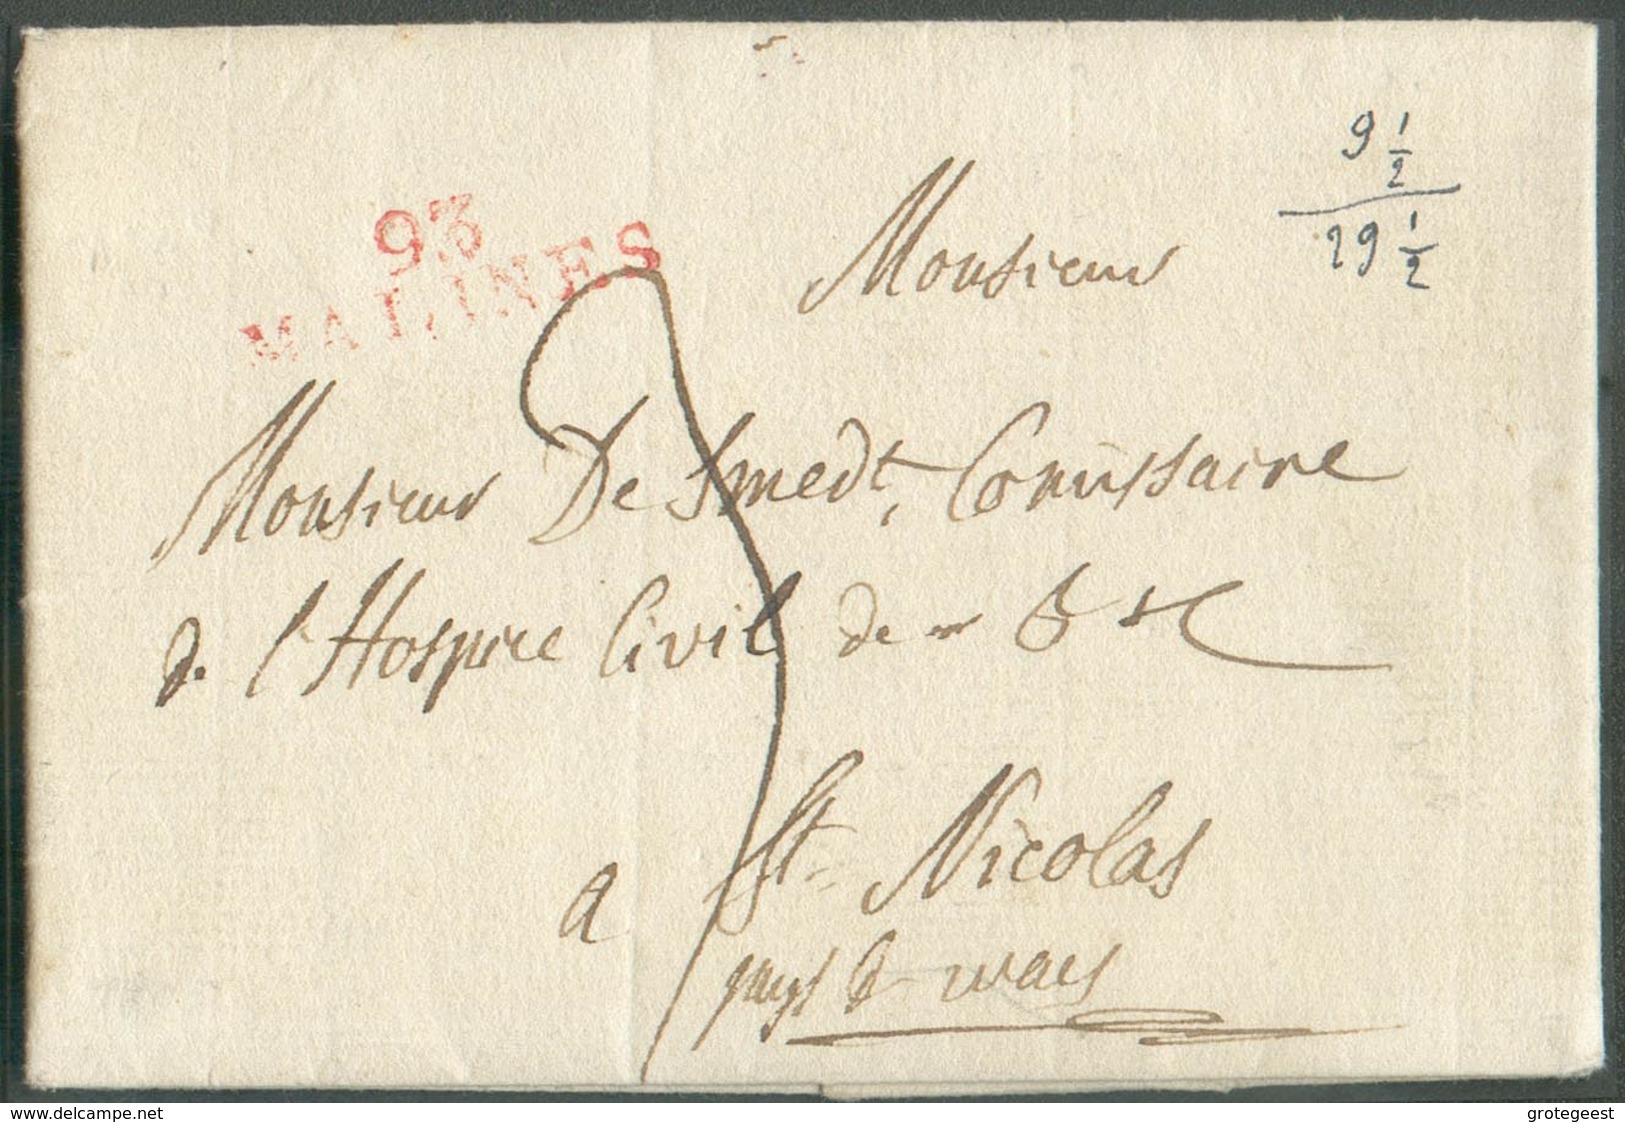 93
MALINES
9 1/2
29 1/2
Monsieur
Monsieur De Smedt, Comissaire
d. l'Hospice Civil de &c
a St. Nicolas
pays d waes
www.delcampe.net
grotegeest